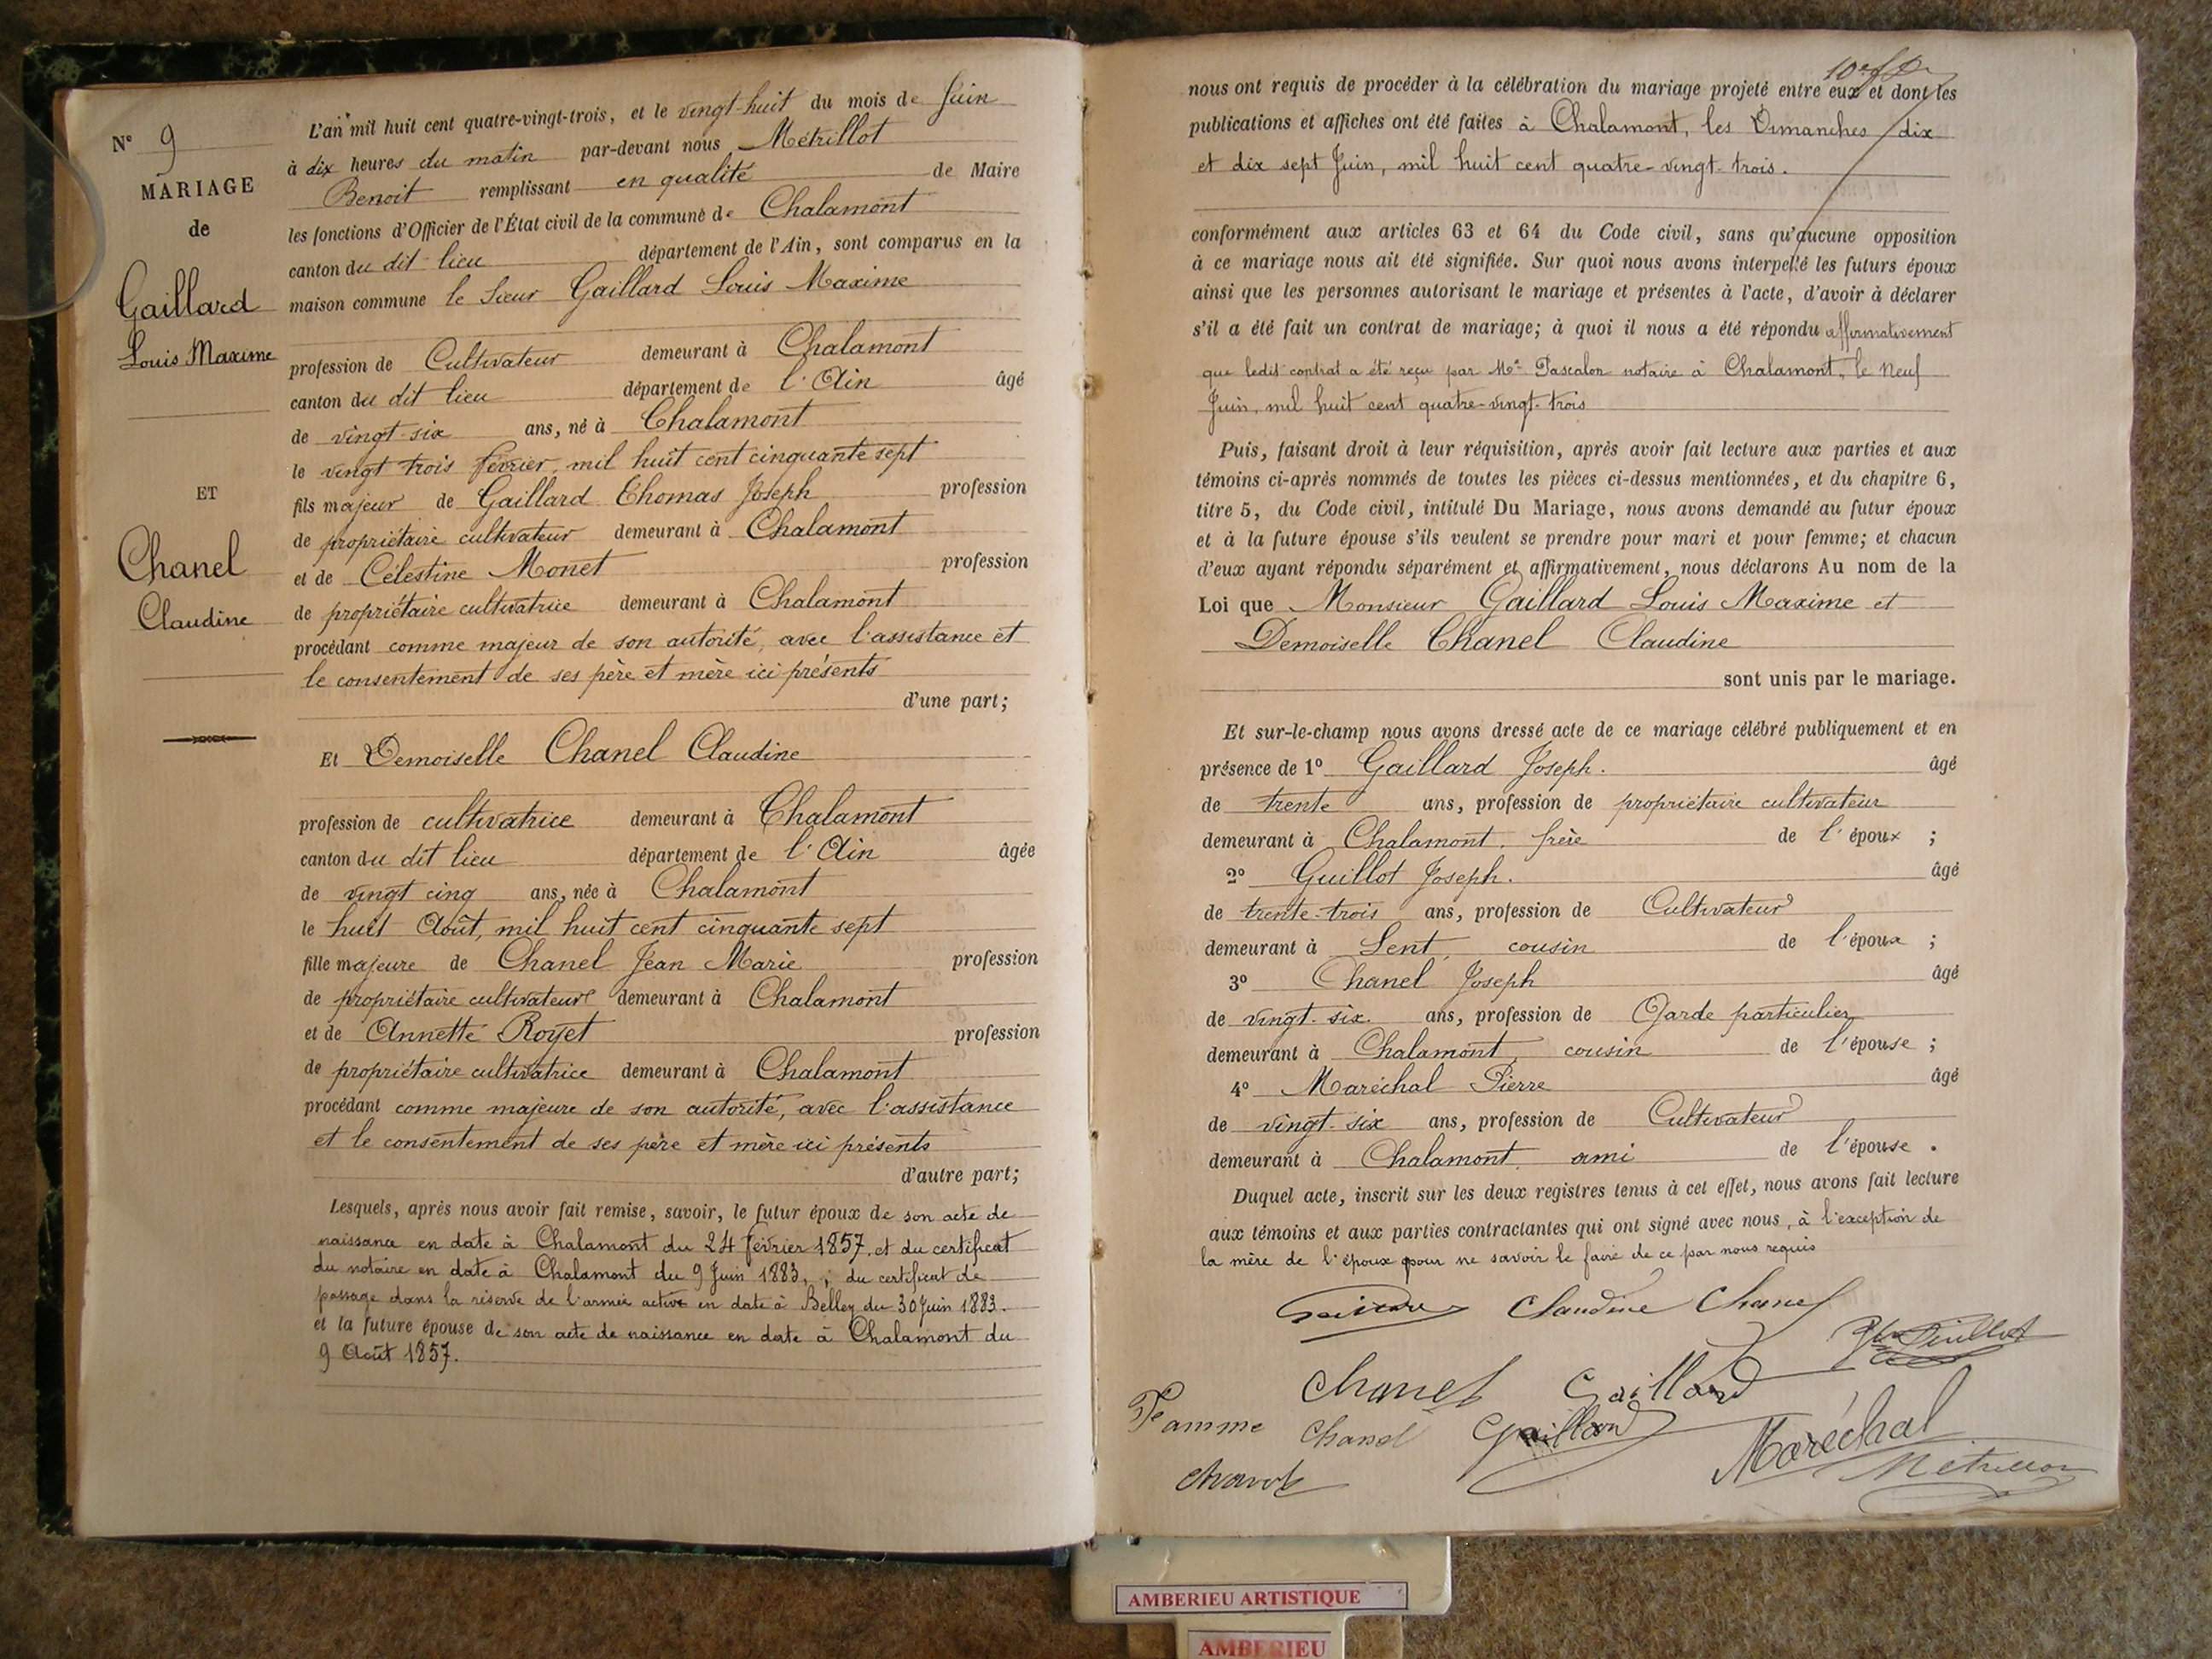 N° 9
MARIAGE
de
Gaillard
Louis Maxime
ET
Chanel
Claudine
L'an mil huit cent quatre-vingt-trois, et le vingt-huit du mois de Juin
à dix heures du matin par-devant nous Métrillot
Benoit remplissant en qualité de Maire
les fonctions d'Officier de l'État civil de la commune de Chalamont
canton du dit lieu département de l'Ain, sont comparus en la
maison commune le Sieur Gaillard Louis Maxime
profession de Cultivateur demeurant à Chalamont
canton du dit lieu département de l'Ain âgé
de vingt-six ans, né à Chalamont
le vingt trois février, mil huit cent cinquante sept
fils majeur de Gaillard Thomas Joseph profession
de propriétaire cultivateur demeurant à Chalamont
et de Célestine Monet profession
de propriétaire cultivatrice demeurant à Chalamont
procédant comme majeur de son autorité, avec l'assistance et
le consentement de ses père et mère ici présents
d'une part;
Et Demoiselle Chanel Claudine
profession de cultivatrice demeurant à Chalamont
canton du dit lieu département de l'Ain âgée
de vingt cinq ans, née à Chalamont
le huit Août, mil huit cent cinquante sept
fille majeure de Chanel Jean Marie profession
de propriétaire cultivateur demeurant à Chalamont
et de Annette Royet profession
de propriétaire cultivatrice demeurant à Chalamont
procédant comme majeure de son autorité, avec l'assistance
et le consentement de ses père et mère ici présents
d'autre part;
Lesquels, après nous avoir fait remise, savoir, le futur époux de son acte de
naissance en date à Chalamont du 24 février 1857, et du certificat
du notaire en date à Chalamont du 9 Juin 1883, ; du certificat de
passage dans la réserve de l'armée active en date à Belley du 30 Juin 1883.
et la future épouse de son acte de naissance en date à Chalamont du
9 Août 1857.
nous ont requis de procéder à la célébration du mariage projeté entre eux et dont les
publications et affiches ont été faites à Chalamont, les Dimanches dix
et dix sept Juin, mil huit cent quatre-vingt-trois.
conformément aux articles 63 et 64 du Code civil, sans qu'aucune opposition
à ce mariage nous ait été signifiée. Sur quoi nous avons interpellé les futurs époux
ainsi que les personnes autorisant le mariage et présentes à l'acte, d'avoir à déclarer
s'il a été fait un contrat de mariage; à quoi il nous a été répondu affirmativement
que ledit contrat a été reçu par Me Pascalon notaire à Chalamont, le neuf
Juin, mil huit cent quatre-vingt-trois
Puis, faisant droit à leur réquisition, après avoir fait lecture aux parties et aux
témoins ci-après nommés de toutes les pièces ci-dessus mentionnées, et du chapitre 6,
titre 5, du Code civil, intitulé Du Mariage, nous avons demandé au futur époux
et à la future épouse s'ils veulent se prendre pour mari et pour femme; et chacun
d'eux ayant répondu séparément et affirmativement, nous déclarons Au nom de la
Loi que Monsieur Gaillard Louis Maxime et
Demoiselle Chanel Claudine
sont unis par le mariage.
Et sur-le-champ nous avons dressé acte de ce mariage célébré publiquement et en
présence de 1° Gaillard Joseph. âgé
de trente ans, profession de propriétaire cultivateur
demeurant à Chalamont, frère de l'époux ;
2° Guillot Joseph. âgé
de trente-trois ans, profession de Cultivateur
demeurant à Lent, cousin de l'époux ;
3° Chanel Joseph âgé
de vingt-six ans, profession de Garde particulier
demeurant à Chalamont, cousin de l'épouse ;
4° Maréchal Pierre âgé
de vingt-six ans, profession de Cultivateur
demeurant à Chalamont, ami de l'épouse .
Duquel acte, inscrit sur les deux registres tenus à cet effet, nous avons fait lecture
aux témoins et aux parties contractantes qui ont signé avec nous, à l'exception de
la mère de l'époux pour ne savoir le faire de ce par nous requis
Claudine Chanel
Chanel Gaillard
Feamme Chanel Gaillard Maréchal
Métrillot
AMBERIEU ARTISTIQUE
AMBERIEU